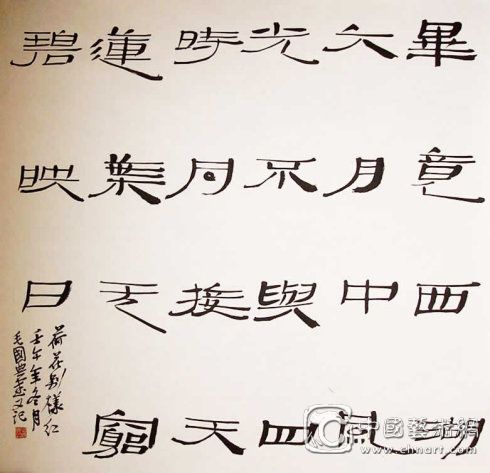 畢竟西湖
六月中風
光不與四
時同接天
蓮葉无窮
碧映日
荷花別樣紅
壬午年冬月
毛國典又記
中國藝術網
www.chnart.com